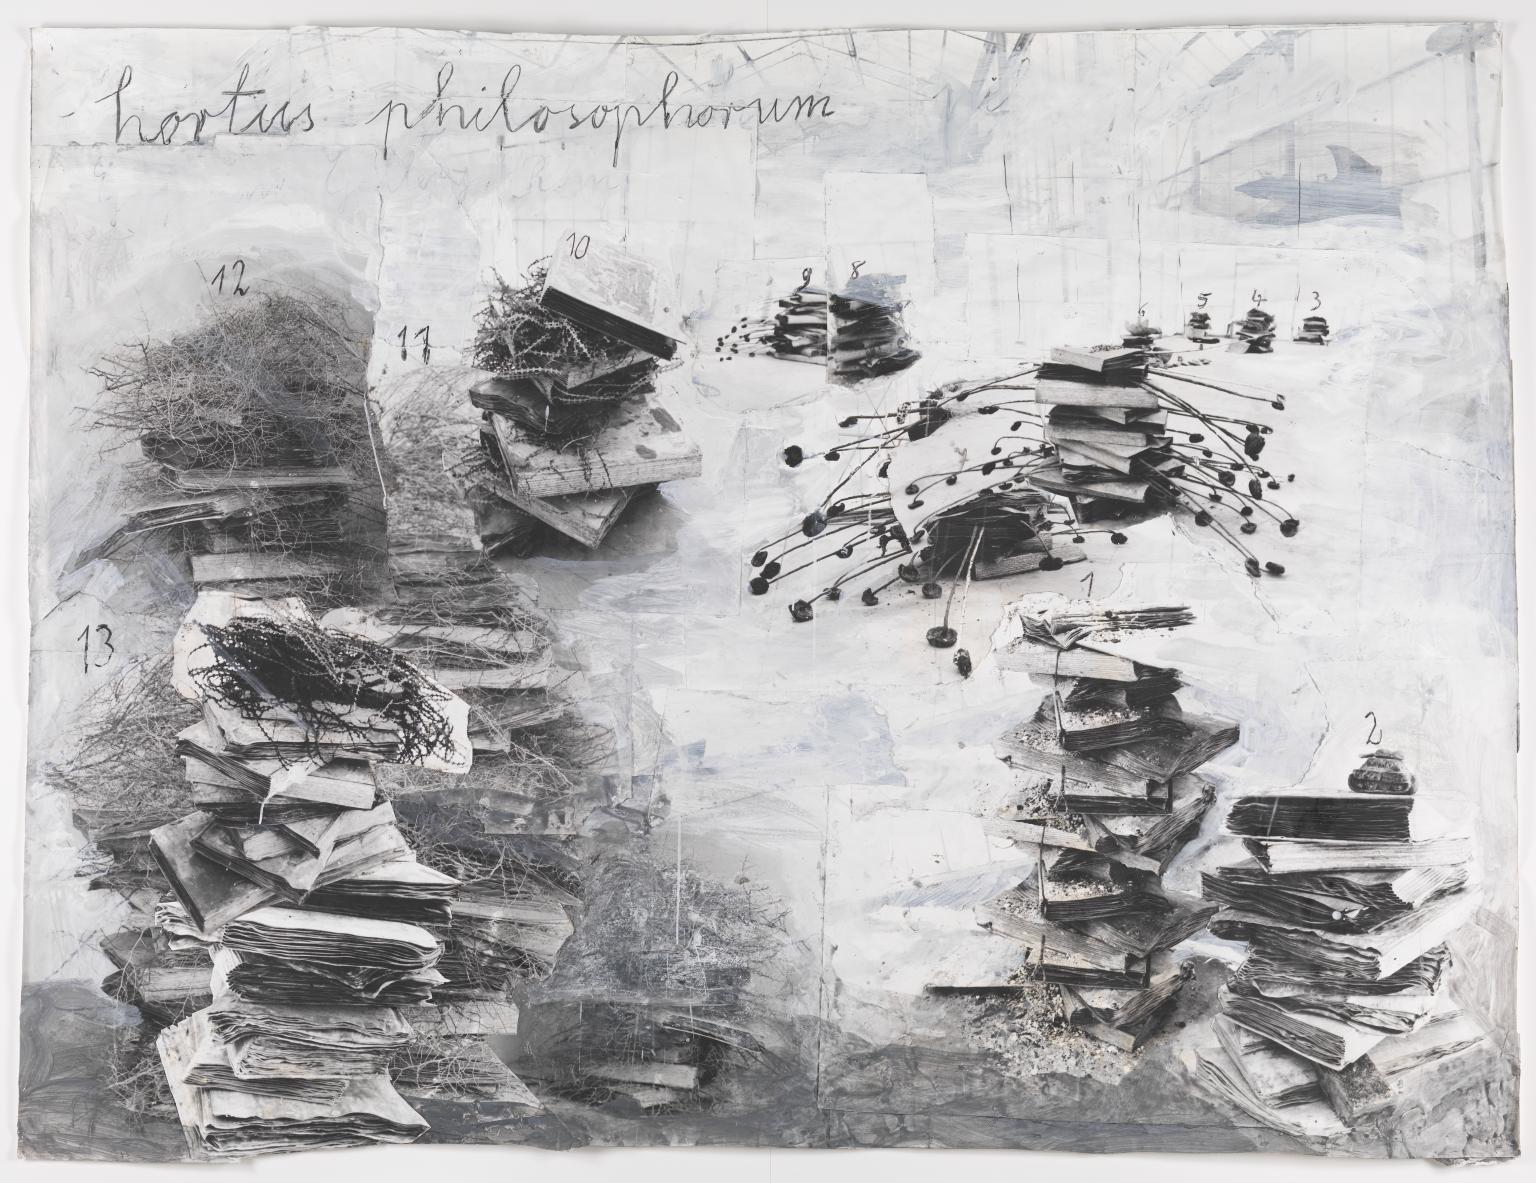 hortus philosophorum
12
10
11
9 8
6 5 4 3
1
13
2